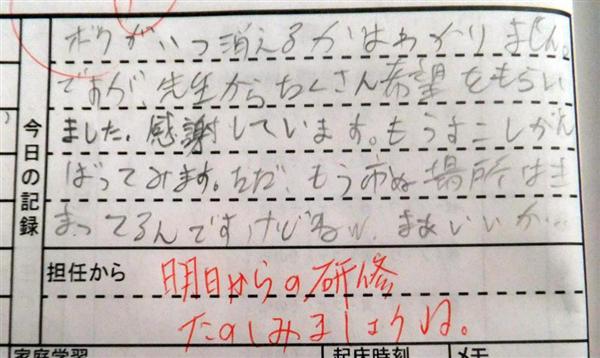 ボクがいつ消えるかはわかりません。
ですが、先生からたくさん希望をもらい
ました。感謝しています。もうすこしがん
ばってみます。ただ、もう市ぬ場所はき
まってるんですけどねw。まあいいか…
今日の記録
担任から
明日からの研修
たのしみましょうね。
家庭学習
起床時刻
メモ